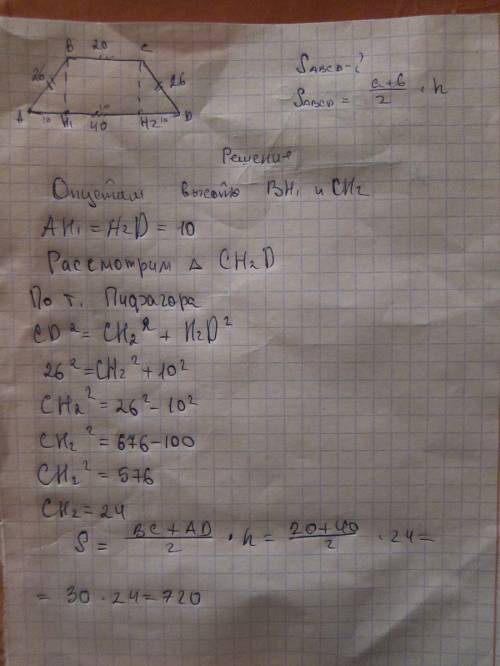 B 20 C
26 26
A 10 H₁ 40 H₂ 10 D
SABCD - ?
SABCD = a+b/2 · h
Решение
Опустим высоты BH₁ и CH₂
AH₁ = H₂D = 10
Рассмотрим Δ CH₂D
По т. Пифагора
CD² = CH₂² + H₂D²
26² = CH₂² + 10²
CH₂² = 26² - 10²
CH₂² = 676 - 100
CH₂² = 576
CH₂ = 24
S = BC + AD/2 · h = 20+40/2 · 24 =
= 30 · 24 = 720